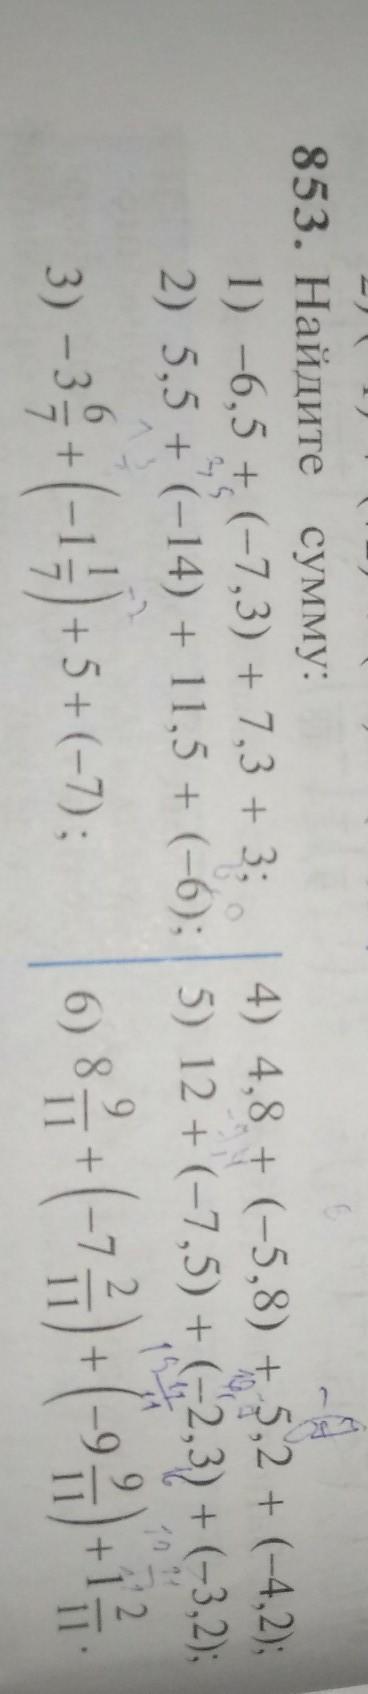 853. Найдите сумму:
1) −6,5 + (−7,3) + 7,3 + 3;
2) 5,5 + (−14) + 11,5 + (−6);
3) −3 6/7 + (−1 1/7) + 5 + (−7);
4) 4,8 + (−5,8) + 5,2 + (−4,2);
5) 12 + (−7,5) + (−2,3) + (−3,2);
6) 8 9/11 + (−7 2/11) + (−9 9/11) + 1 2/11.